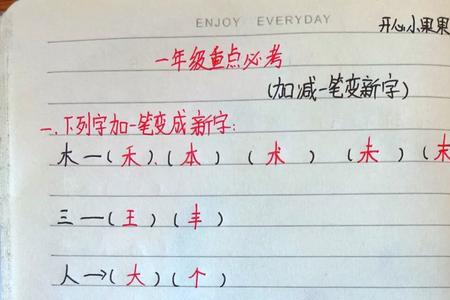 ENJOY EVERYDAY
开心小果果
一年级重点必考
(加减一笔变新字)
一、下列字加一笔变成新字:
木一(禾)、(本) (术) (未) (末
三一(王) (丰)
人→(大) (个)